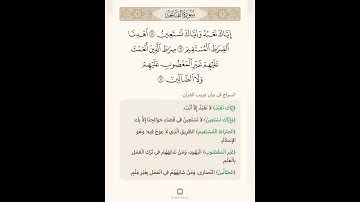 سُورَةُ الفَاتِحَةِ
إِيَّاكَ نَعْبُدُ وَإِيَّاكَ نَسْتَعِينُ ۝ اهْدِنَا
الصِّرَاطَ الْمُسْتَقِيمَ ۝ صِرَاطَ الَّذِينَ أَنْعَمْتَ
عَلَيْهِمْ غَيْرِ الْمَغْضُوبِ عَلَيْهِمْ
وَلَا الضَّالِّينَ ۝
السراج في بيان غريب القرآن
﴿إِيَّاكَ نَعْبُدُ﴾ لَا نَعْبُدُ إِلَّا أَنْتَ.
﴿وَإِيَّاكَ نَسْتَعِينُ﴾ لَا نَسْتَعِينُ فِي قَضَاءِ حَوَائِجِنَا إِلَّا بِكَ.
﴿الصِّرَاطَ الْمُسْتَقِيمَ﴾ الطَّرِيقَ الَّذِي لَا عِوَجَ فِيهِ؛ وَهُوَ
الإِسْلَامُ.
﴿غَيْرِ الْمَغْضُوبِ﴾ الْيَهُودِ، وَمَنْ شَابَهَهُمْ فِي تَرْكِ الْعَمَلِ
بِالْعِلْمِ.
﴿الضَّالِّينَ﴾ النَّصَارَى، وَمَنْ شَابَهَهُمْ فِي الْعَمَلِ بِغَيْرِ عِلْمٍ.